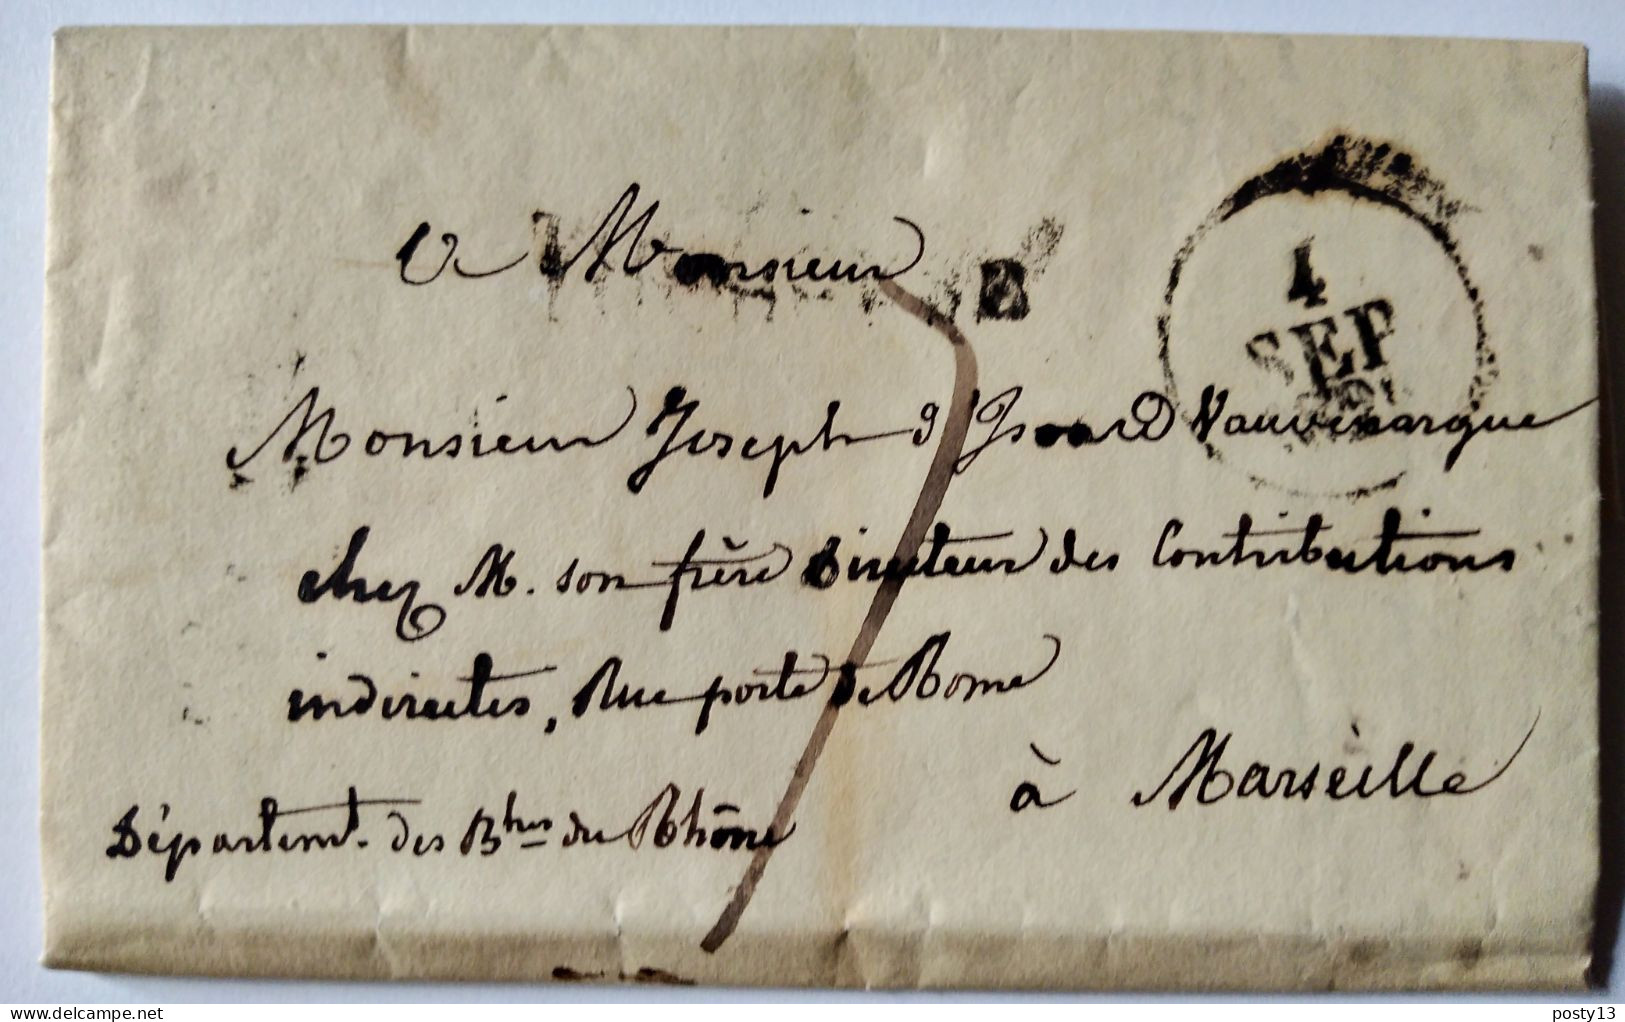 A Monsieur
4
SEP
Monsieur Joseph d'Isoard Vauvenargue
chez M. son frère Directeur des Contributions
indirectes, Rue porte de Rome
à Marseille
Départemt. des Bhes du Rhône
delcampe.net
posty13